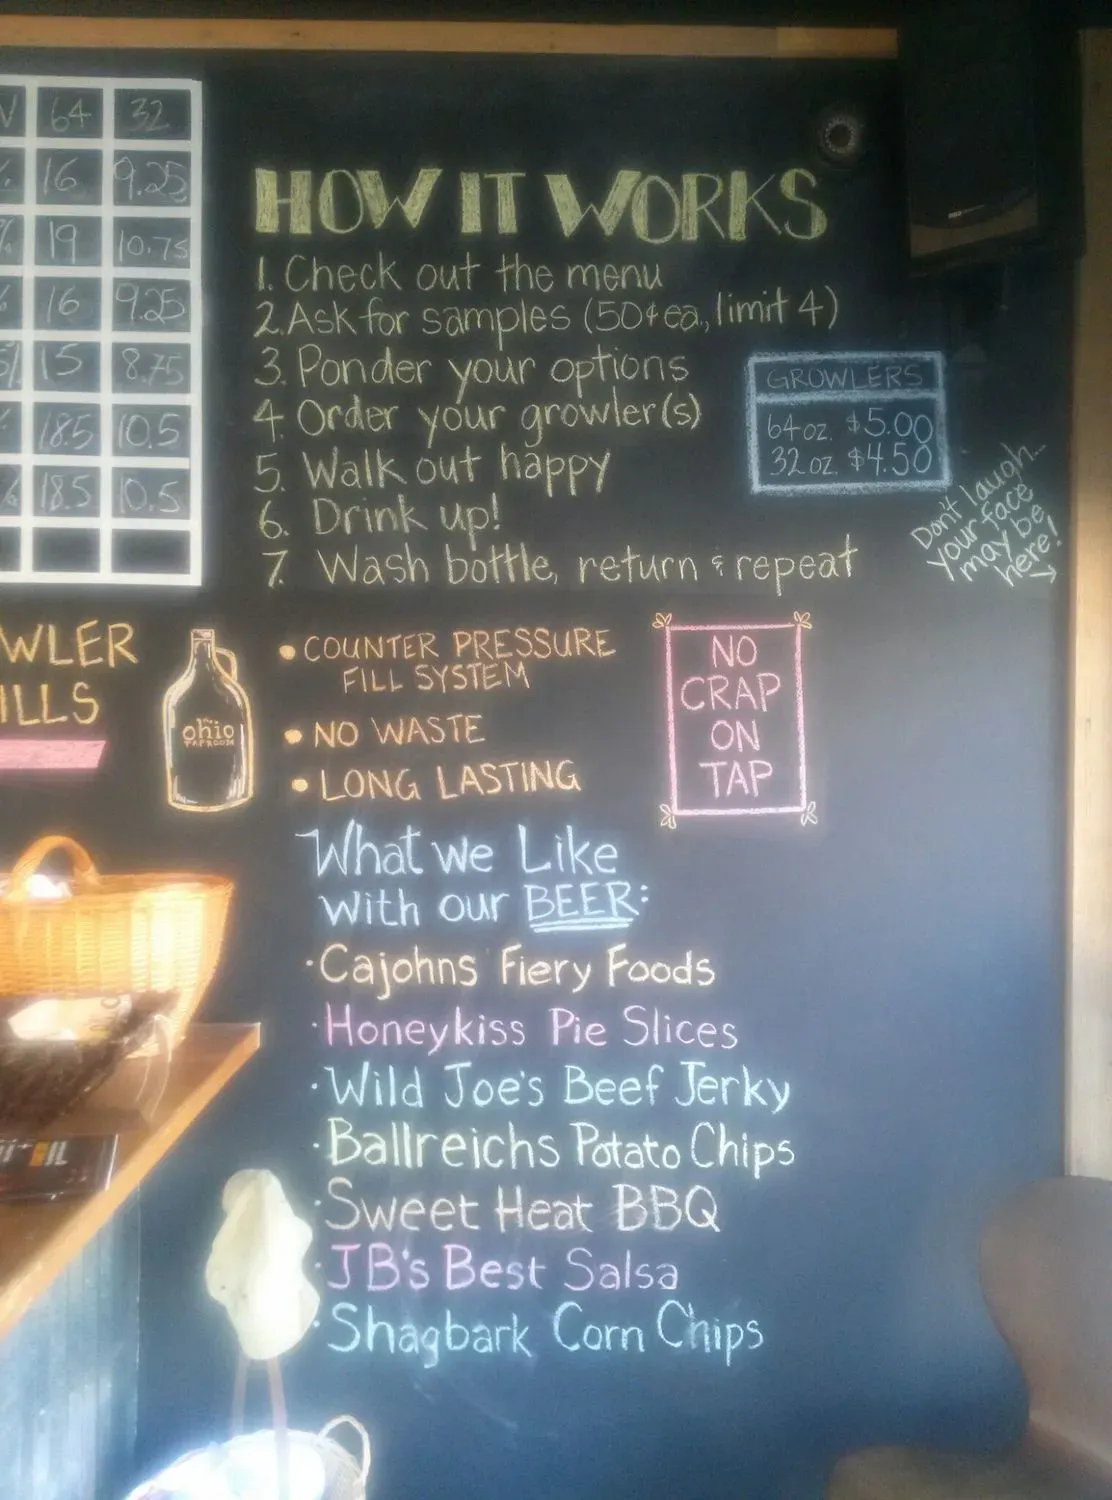 64 32
16 9.25
19 10.75
16 9.25
15 8.75
18.5 10.5
18.5 10.5
HOW IT WORKS
1. Check out the menu
2. Ask for samples (50¢ ea., limit 4)
3. Ponder your options
4. Order your growler(s)
5. Walk out happy
6. Drink up!
7. Wash bottle, return & repeat
GROWLERS
64 oz. $5.00
32 oz. $4.50
Don't laugh...
your face
may be
here!
WLER
ILLS
ohio
TAPROOM
• COUNTER PRESSURE
FILL SYSTEM
• NO WASTE
• LONG LASTING
NO
CRAP
ON
TAP
What we Like
with our BEER:
· Cajohns Fiery Foods
· Honeykiss Pie Slices
· Wild Joe's Beef Jerky
· Ballreichs Potato Chips
· Sweet Heat BBQ
· JB's Best Salsa
· Shagbark Corn Chips